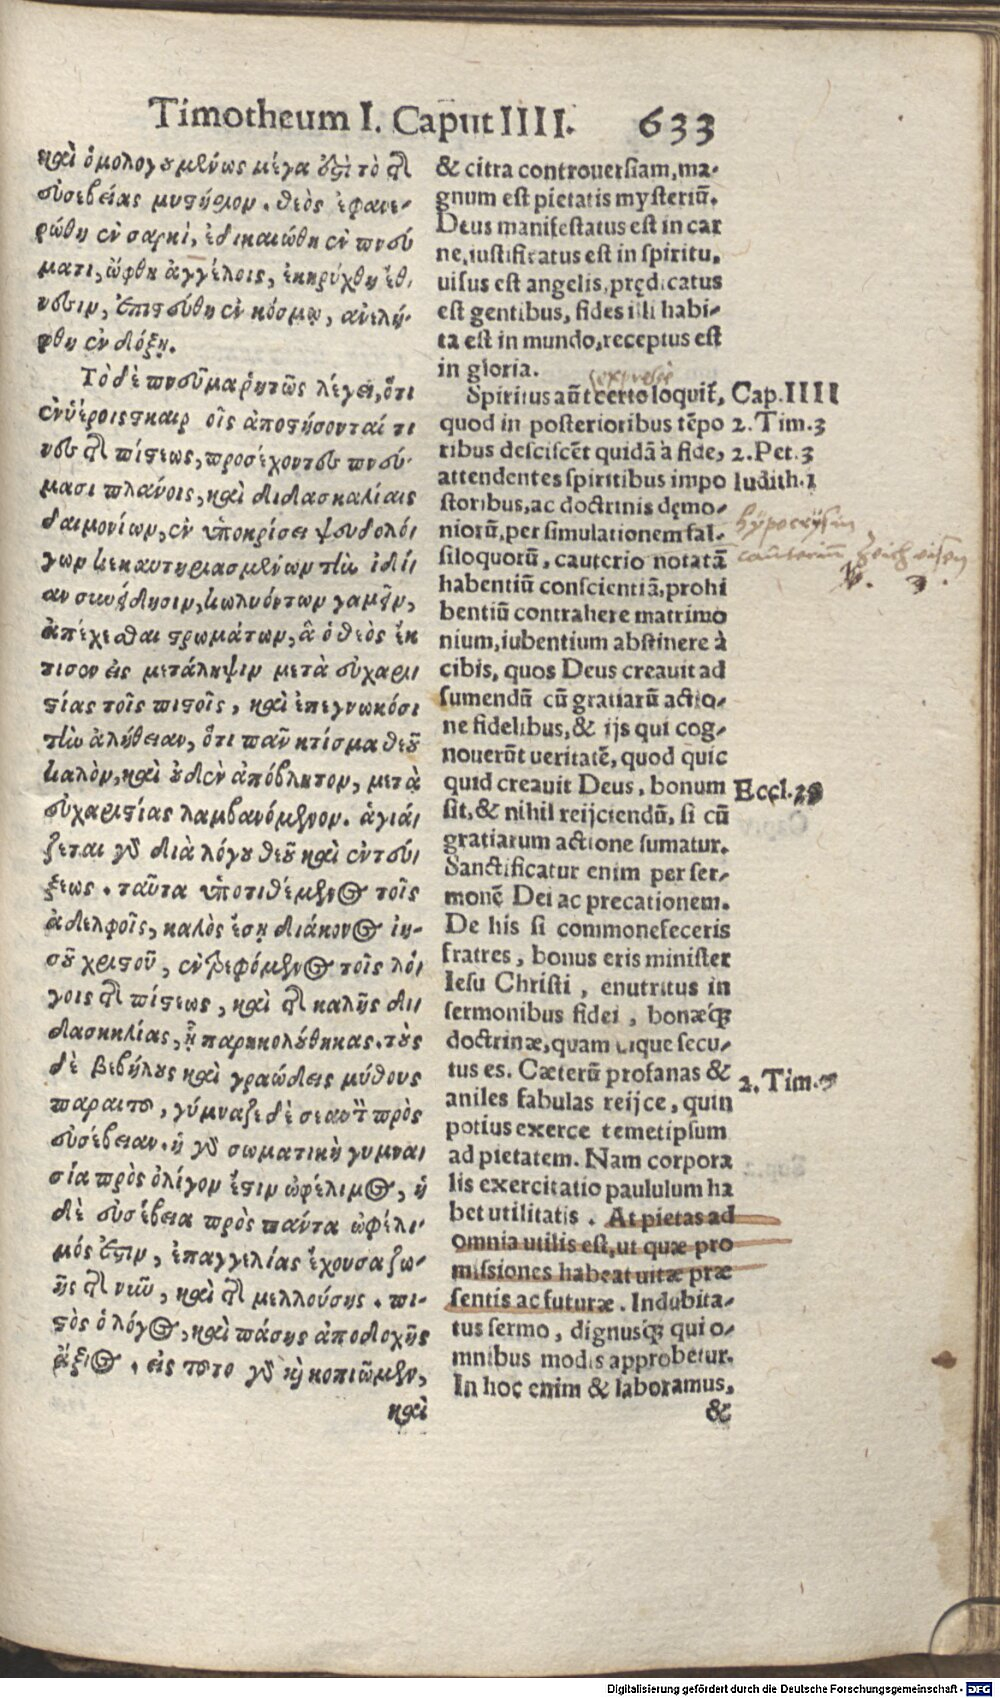 Timotheum I. Caput IIII. 633
καὶ ὁμολογουμένως μέγα ἐστὶ τὸ τῆς
εὐσεβείας μυστήριον. θεὸς ἐφανε-
ρώθη ἐν σαρκὶ, ἐδικαιώθη ἐν πνεύ
ματι, ὤφθη ἀγγέλοις, ἐκηρύχθη ἔθ,
νεσιν, ἐπιστεύθη ἐν κόσμῳ, ἀνελή-
φθη ἐν δόξῃ.
Τὸ δὲ πνεῦμα ῥητῶς λέγει, ὅτι
ἐν ὑστέροις καιρ οῖς ἀποστήσονταί τι
νες τῆς πίστεως, προσέχοντες πνεύ-
μασι πλάνοις, καὶ διδασκαλίαις
δαιμονίων, ἐν ὑποκρίσει ψευδολό,
γων κεκαυτηριασμένων τὴν ἰδί,
αν συνείδησιν, κωλυόντων γαμεῖν,
ἀπέχεσθαι βρωμάτων, ἃ ὁ θεὸς ἔκ
τισεν εἰς μετάληψιν μετὰ εὐχαρι
στίας τοῖς πιστοῖς, καὶ ἐπεγνωκόσι
τὴν ἀλήθειαν, ὅτι πᾶν κτίσμα θεοῦ
καλὸν, καὶ οὐδὲν ἀπόβλητον, μετὰ
εὐχαριστίας λαμβανόμενον. ἁγιά,
ζεται γὰρ διὰ λόγου θεοῦ καὶ ἐντεύ,
ξεως. ταῦτα ὑποτιθέμενος τοῖς
ἀδελφοῖς, καλὸς ἔσῃ διάκονος ἰη-
σοῦ χριστοῦ, ἐντρεφόμενος τοῖς λό,
γοις τῆς πίστεως, καὶ τῆς καλῆς δι,
δασκηλίας, ᾗ παρηκολούθηκας. τοὺς
δὲ βεβήλους καὶ γραώδεις μύθους
παραιτοῦ, γύμναζε δὲ σεαυτὸν πρὸς
εὐσέβειαν. ἡ γὰρ σωματικὴ γυμνα,
σία πρὸς ὀλίγον ἔστιν ὠφέλιμος, ἡ
δὲ εὐσέβεια πρὸς πάντα ὠφέλι-
μός ἐστιν, ἐπαγγελίας ἔχουσα ζω-
ῆς τῆς νῦν, καὶ τῆς μελλούσης. πι-
στὸς ὁ λόγος, καὶ πάσης ἀποδοχῆς
ἄξιος. εἰς τοῦτο γὰρ καὶ κοπιῶμεν,
καὶ
& citra controuersiam, ma-
gnum est pietatis mysteriū.
Deus manifestatus est in car
ne, iustificatus est in spiritu,
uisus est angelis, prędicatus
est gentibus, fides illi habi-
ta est in mundo, receptus est
in gloria.
Spiritus aūt certo loquit̄, Cap. IIII
quod in posterioribus tēpo 2. Tim. 3
ribus descisēt quidā à fide, 2. Pet. 3
attendentes spiritibus impo Iudith. 1
storibus, ac doctrinis dęmo-
niorū, per simulationem fal-
siloquorū, cauterio notatā
habentiū conscientiā, prohi
bentiū contrahere matrimo
nium, iubentium abstinere à
cibis, quos Deus creauit ad
sumendū cū gratiarū actio-
ne fidelibus, & ijs qui cog-
nouerūt ueritatē, quod quic
quid creauit Deus, bonum
sit, & nihil reijciendū, si cū
gratiarum actione sumatur.
Sanctificatur enim per ser-
monē Dei ac precationem.
De his si commonefeceris
fratres, bonus eris minister
Iesu Christi, enutritus in
sermonibus fidei, bonæq́ꝫ
doctrinæ, quam usque secu-
tus es. Cæterū profanas &
aniles fabulas reijce, quin
potius exerce temetipsum
ad pietatem. Nam corpora
lis exercitatio paululum ha
bet utilitatis. At pietas ad
omnia utilis est, ut quæ pro
missiones habeat uitæ præ
sentis ac futuræ. Indubita-
tus sermo, dignusq́ꝫ qui o-
mnibus modis approbetur.
In hoc enim & laboramus,
&
Eccl.
2. Tim.
hypocrisin
Digitalisierung gefördert durch die Deutsche Forschungsgemeinschaft - DFG